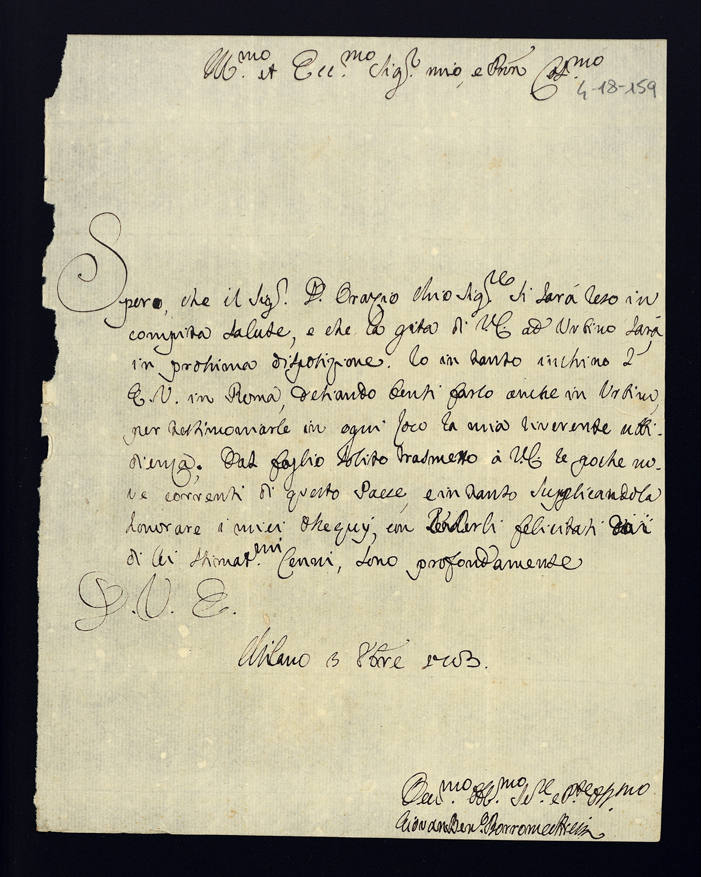 Ill.mo et Ecc.mo Sig.r mio, e Pron Col.mo
4-18-159
Spero, che il Sig.r D. Orazio Suo Sig.re si sarà reso in
compita salute, e che la gita di V.E. ad Urbino sarà
in prossima disposizione. Io in tanto inchino l'
E.V. in Roma, desiando farlo anche in Urbino,
per testimoniarle in ogni loco la mia riverente ubbi-
dienza. Dal foglio solito trasmetto à V.E. le poche no-
ve correnti di questo Paese, e in tanto supplicandola
honorare i miei ossequij, con felicitati
di lei stimat.mi Cenni, sono profondamente
D. V. E.
Milano 3 8bre 1703.
Dev.mo Obl.mo Se.re
Giovan Borromeo